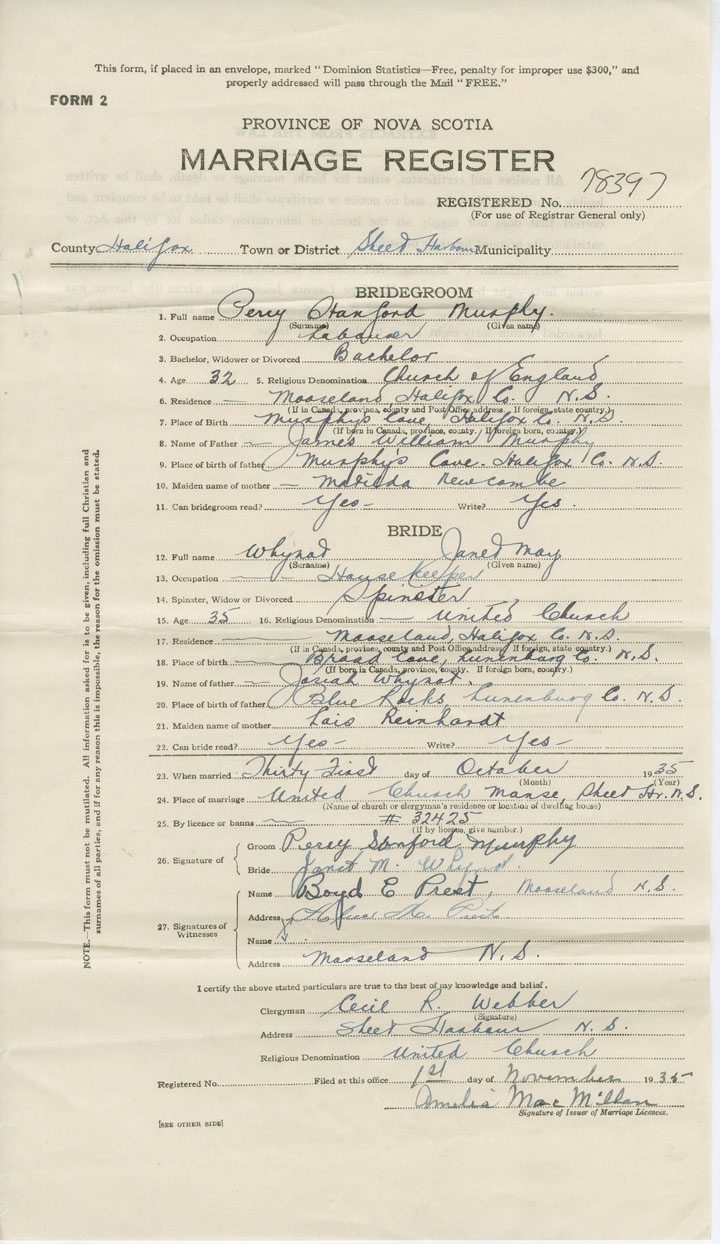 This form, if placed in an envelope, marked "Dominion Statistics—Free, penalty for improper use $300," and
properly addressed will pass through the Mail "FREE."
FORM 2
PROVINCE OF NOVA SCOTIA
MARRIAGE REGISTER
REGISTERED No. 78397
(For use of Registrar General only)
County Halifax Town or District Sheet Harbour Municipality
BRIDEGROOM
1. Full name Percy Stanford Murphy.
(Surname) (Given name)
2. Occupation Labourer
3. Bachelor, Widower or Divorced Bachelor
4. Age 32 5. Religious Denomination Church of England
6. Residence Mooseland Halifax Co. N.S.
(If in Canada, province, county and Post Office address. If foreign, state country.)
7. Place of Birth Murphy's Cove, Halifax Co. N.S.
(If born in Canada, province, county. If foreign born, country.)
8. Name of Father James William Murphy
9. Place of birth of father Murphy's Cove. Halifax Co. N.S.
10. Maiden name of mother Matilda Newcombe
11. Can bridegroom read? Yes Write? Yes.
BRIDE
12. Full name Whynot Janet May
(Surname) (Given name)
13. Occupation House Keeper
14. Spinster, Widow or Divorced Spinster
15. Age 35 16. Religious Denomination United Church
17. Residence Mooseland, Halifax Co. N.S.
(If in Canada, province, county and Post Office address. If foreign, state country.)
18. Place of birth Broad Cove, Lunenburg Co. N.S.
(If born in Canada, province, county. If foreign born, country.)
19. Name of father Josiah Whynot.
20. Place of birth of father Blue Rocks, Lunenburg Co. N.S.
21. Maiden name of mother Lois Reinhardt
22. Can bride read? Yes Write? Yes
23. When married Thirty First day of October 1935
(Month) (Year)
24. Place of marriage United Church Manse Sheet Hr. N.S.
(Name of church or clergyman's residence or location of dwelling house)
25. By licence or banns # 32425
(If by licence, give number.)
26. Signature of
Groom Percy Stanford Murphy
Bride Janet M. Whynot
27. Signatures of Witnesses
Name Boyd E Prest, Mooseland N.S.
Address
Name
Address Mooseland N.S.
I certify the above stated particulars are true to the best of my knowledge and belief.
Clergyman Cecil R. Webber
(Signature)
Address Sheet Harbour N.S.
Religious Denomination United Church
Registered No. Filed at this office 1st day of November 1935
Amelia MacMillan
Signature of Issuer of Marriage Licences.
[SEE OTHER SIDE]
NOTE.—This form must not be mutilated. All information asked for is to be given, including full Christian and
surnames of all parties, and if for any reason this is impossible, the reason for the omission must be stated.